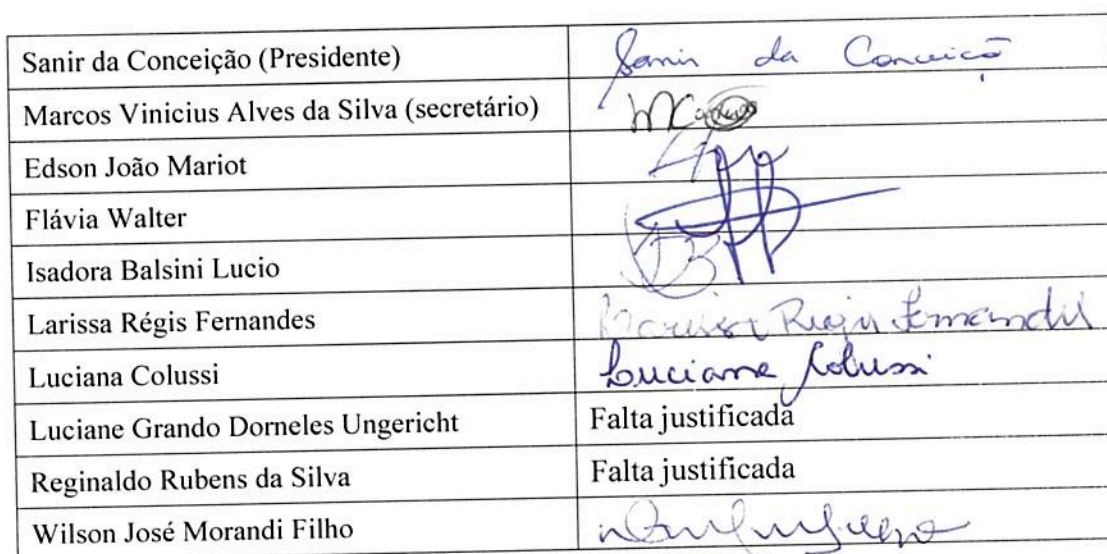 Sanir da Conceição (Presidente) Sanir da Conceição
Marcos Vinicius Alves da Silva (secretário)
Edson João Mariot
Flávia Walter
Isadora Balsini Lucio
Larissa Régis Fernandes Larissa Régis Fernandes
Luciana Colussi Luciane Colussi
Luciane Grando Dorneles Ungericht Falta justificada
Reginaldo Rubens da Silva Falta justificada
Wilson José Morandi Filho